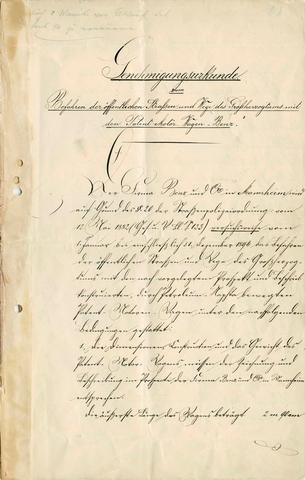 Genehmigungsurkunde
zum
Befahren der öffentlichen Straßen und Wege des Großherzogtums mit
dem „Patent Motor Wagen Benz“.
Der Firma Benz und Cie in Mannheim wird
auf Grund des § 20 der Straßenpolizeiordnung vom
12. Mai 1882 (Ges. u. V. Bl. S. 123) versuchsweise vom
1. Januar bis einschließlich 31. Dezember 1896 das Befahren
der öffentlichen Straßen und Wege des Großherzog-
tums mit den nach vorgelegtem Prospekt und Beschrieb
konstruierten, durch Petroleum Naphta bewegten
Patent Motoren Wagen unter den nachfolgenden
Bedingungen gestattet:
1., die Dimensionen, Konstruktion und das Gewicht des
Patent Motor Wagens müssen der Zeichnung und
Beschreibung im Prospekte der Firma Benz und Cie in Mannheim
entsprechen.
Die äußerste Länge des Wagens beträgt